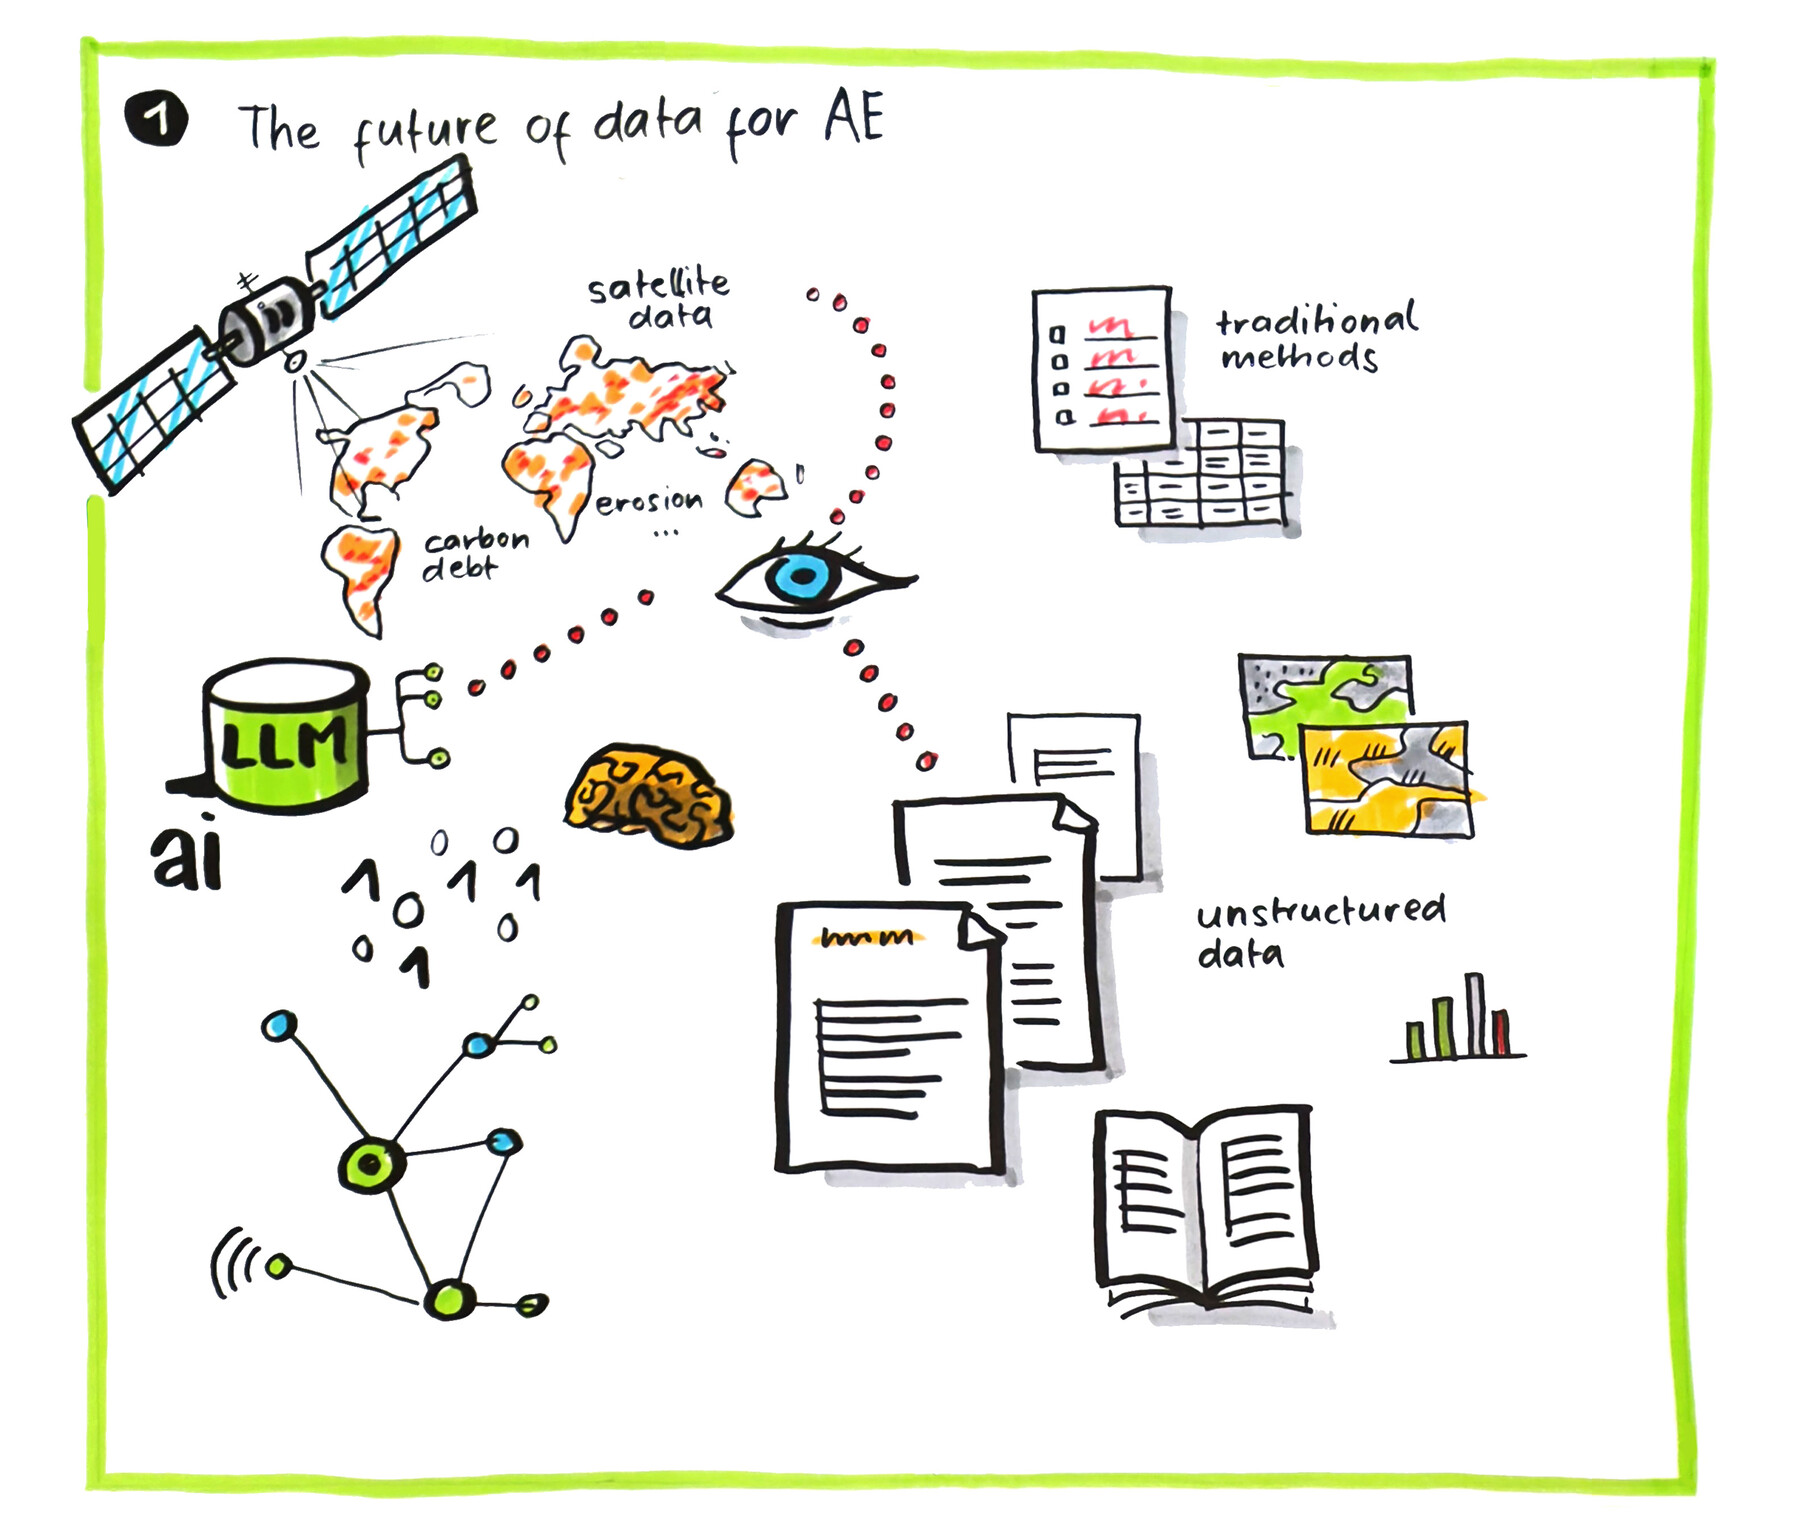 1 The future of data for AE
satellite
data
traditional
methods
erosion
...
carbon
debt
LLM
ai
0 0
1 1 1
0
0 0
1
unstructured
data